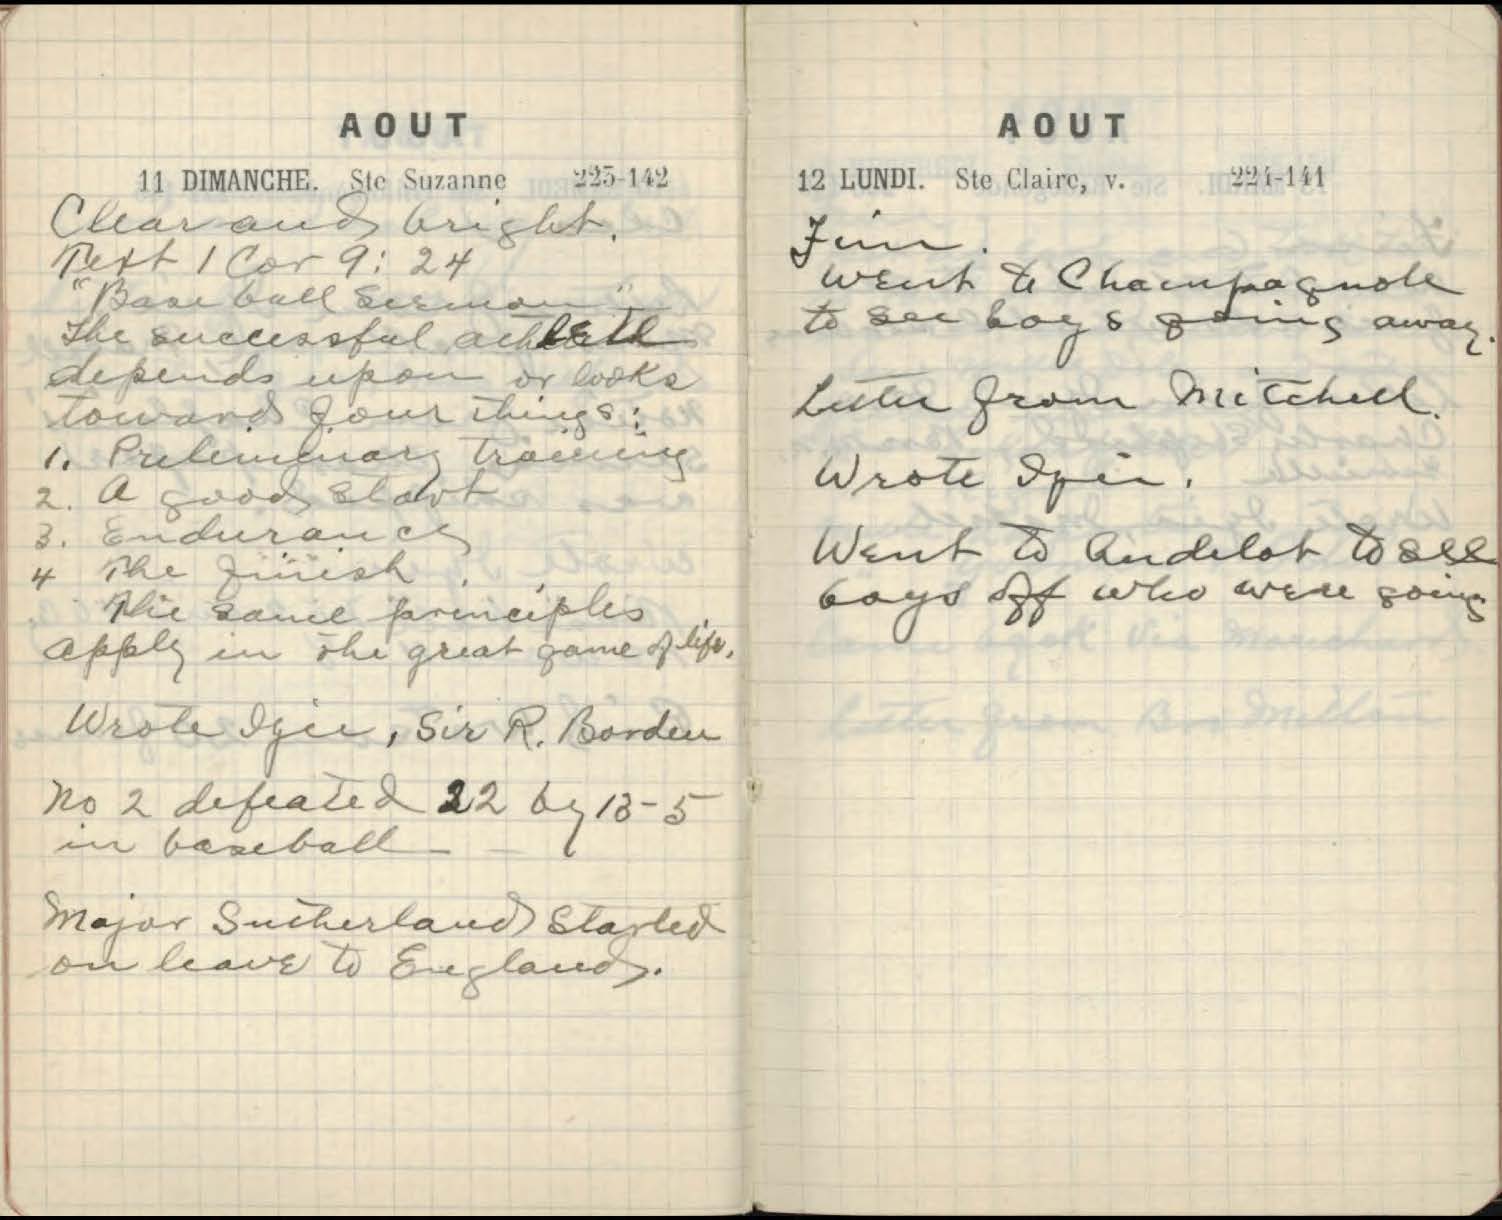 AOUT
11 DIMANCHE. Ste Suzanne 223-142
Clear and bright.
Text 1 Cor 9: 24
"Base ball Sermon"
The successful athlete
depends upon or looks
toward four things:
1. Preliminary training
2. A good start
3. Endurance
4 The finish.
The same principles
apply in the great game of life.
Wrote Izie, Sir R. Borden
No 2 defeated 22 by 13-5
in baseball
Major Sutherland started
on leave to England.
AOUT
12 LUNDI. Ste Claire, v. 224-141
Fine.
Went to Champagnole
to see boys going away.
Letter from Mitchell.
Wrote Izie.
Went to Andelot to see
boys off who were going